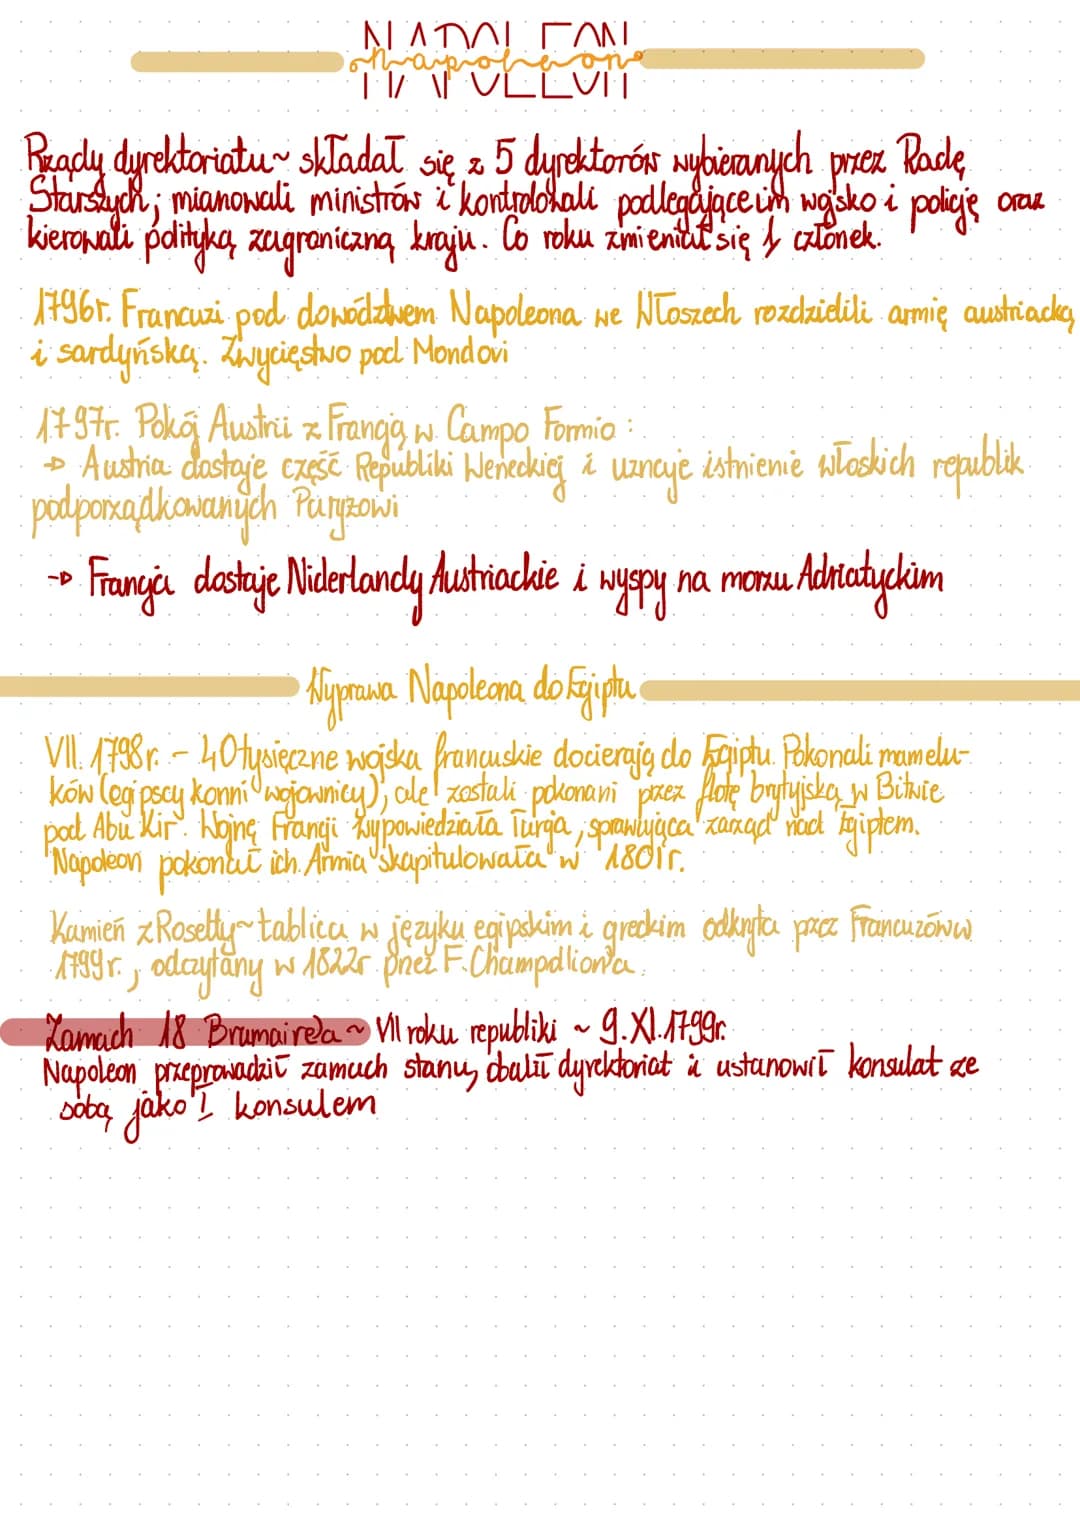 NAPOLEON
napoleon
Rządy dyrektoriatu ~ składał się z 5 dyrektorów wybieranych przez Radę
Starszych; mianowali ministrów i kontrolowali podlegające im wojsko i policję oraz
kierowali polityką zagraniczną kraju. Co roku zmieniał się 1 członek.
1796r. Francuzi pod dowództwem Napoleona we Włoszech rozdzielili armię austriacką
i sardyńską. Zwycięstwo pod Mondovi
1797r. Pokój Austrii z Francją w Campo Formio:
→ Austria dostaje część Republiki Weneckiej i uznaje istnienie włoskich republik
podporządkowanych Paryżowi
→ Francja dostaje Niderlandy Austriackie i wyspy na morzu Adriatyckim
Wyprawa Napoleona do Egiptu
VII. 1798r. - 40tysięczne wojska francuskie docierają do Egiptu. Pokonali mamelu-
ków (egipscy konni wojownicy), ale zostali pokonani przez flotę brytyjską w Bitwie
pod Abu Kir. Wojnę Francji wypowiedziała Turcja, sprawująca zarząd nad Egiptem.
Napoleon pokonał ich. Armia skapitulowała w 1801r.
Kamień z Rosetty ~ tablica w języku egipskim i greckim odkryta przez Francuzów w
1799r., odczytany w 1822r przez F. Champollion'a
Zamach 18 Brumaire'a ~ VII roku republiki ~ 9.XI.1799r.
Napoleon przeprowadził zamach stanu, obalił dyrektoriat i ustanowił konsulat ze
sobą jako I konsulem